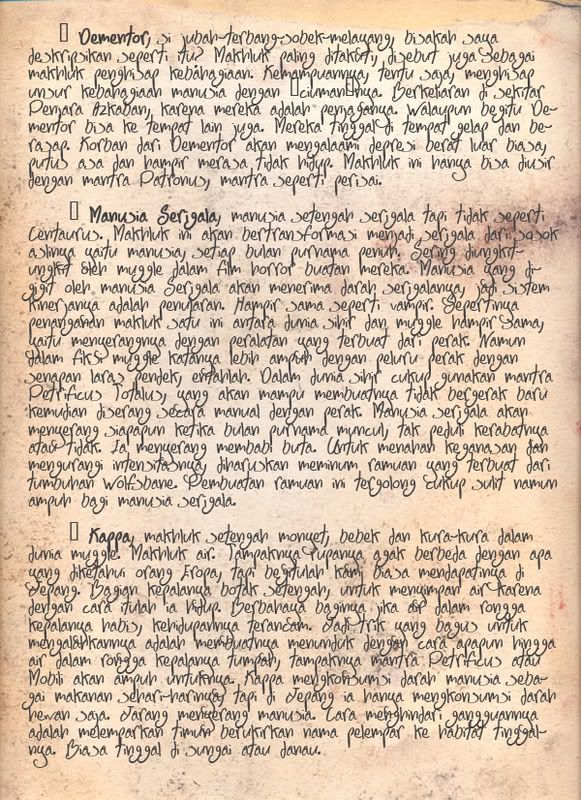 ▯ Dementor, si jubah-terbang-sobek-melayang, bisakah saya
deskripsikan seperti itu? Makhluk paling ditakuti, disebut juga sebagai
makhluk penghisap kebahagiaan. Kemampuannya, tentu saja, menghisap
unsur kebahagiaan manusia dengan ▯ciuman▯nya. Berkeliaran di sekitar
Penjara Azkaban, karena mereka adalah penjaganya. Walaupun begitu De-
mentor bisa ke tempat lain juga. Mereka tinggal di tempat gelap dan be-
rasap. Korban dari Dementor akan mengalami depresi berat luar biasa,
putus asa dan hampir merasa tidak hidup. Makhluk ini hanya bisa diusir
dengan mantra Patronus, mantra seperti perisai.
▯ Manusia Serigala, manusia setengah serigala tapi tidak seperti
Centaurus. Makhluk ini akan bertransformasi menjadi serigala dari sosok
aslinya yaitu manusia, setiap bulan purnama penuh. Sering diungkit-
ungkit oleh muggle dalam film horror buatan mereka. Manusia yang di-
gigit oleh manusia Serigala akan menerima darah serigalanya, jadi sistem
kinerjanya adalah penularan. Hampir sama seperti vampir. Sepertinya
penanganan makluk satu ini antara dunia sihir dan muggle hampir sama,
yaitu menyerangnya dengan peralatan yang terbuat dari perak. Namun
dalam fiksi muggle katanya lebih ampuh dengan peluru perak dengan
senapan laras pendek, entahlah. Dalam dunia sihir cukup gunakan mantra
Petrificus Totalus, yang akan mampu membuatnya tidak bergerak baru
kemudian diserang secara manual dengan perak. Manusia serigala akan
menyerang siapapun ketika bulan purnama muncul, tak peduli kerabatnya
atau tidak. Ia menyerang membabi buta. Untuk menahan keganasan dan
mengurangi intensitasnya, diharuskan meminum ramuan yang terbuat dari
tumbuhan Wolfsbane. Pembuatan ramuan ini tergolong cukup sulit namun
ampuh bagi manusia serigala.
▯ Kappa, makhluk setengah monyet, bebek dan kura-kura dalam
dunia muggle. Makhluk air. Tampaknya rupanya agak berbeda dengan apa
yang diketahui orang Eropa, tapi begitulah kami biasa mendapatinya di
Jepang. Bagian kepalanya botak setengah, untuk menyimpan air karena
dengan cara itulah ia hidup. Berbahaya baginya jika air dalam rongga
kepalanya habis, kehidupannya terancam. Jadi trik yang bagus untuk
mengalahkannya adalah membuatnya menunduk dengan cara apapun hingga
air dalam rongga kepalanya tumpah, tampaknya mantra Petrificus atau
Mobili akan ampuh untuknya. Kappa mengkonsumsi darah manusia seba-
gai makanan sehari-harinya, tapi di Jepang ia hanya mengkonsumsi darah
hewan saja. Jarang menyerang manusia. Cara menghindari gangguannya
adalah melemparkan timun berukirkan nama pelempar ke habitat tinggal-
nya. Biasa tinggal di sungai atau danau.